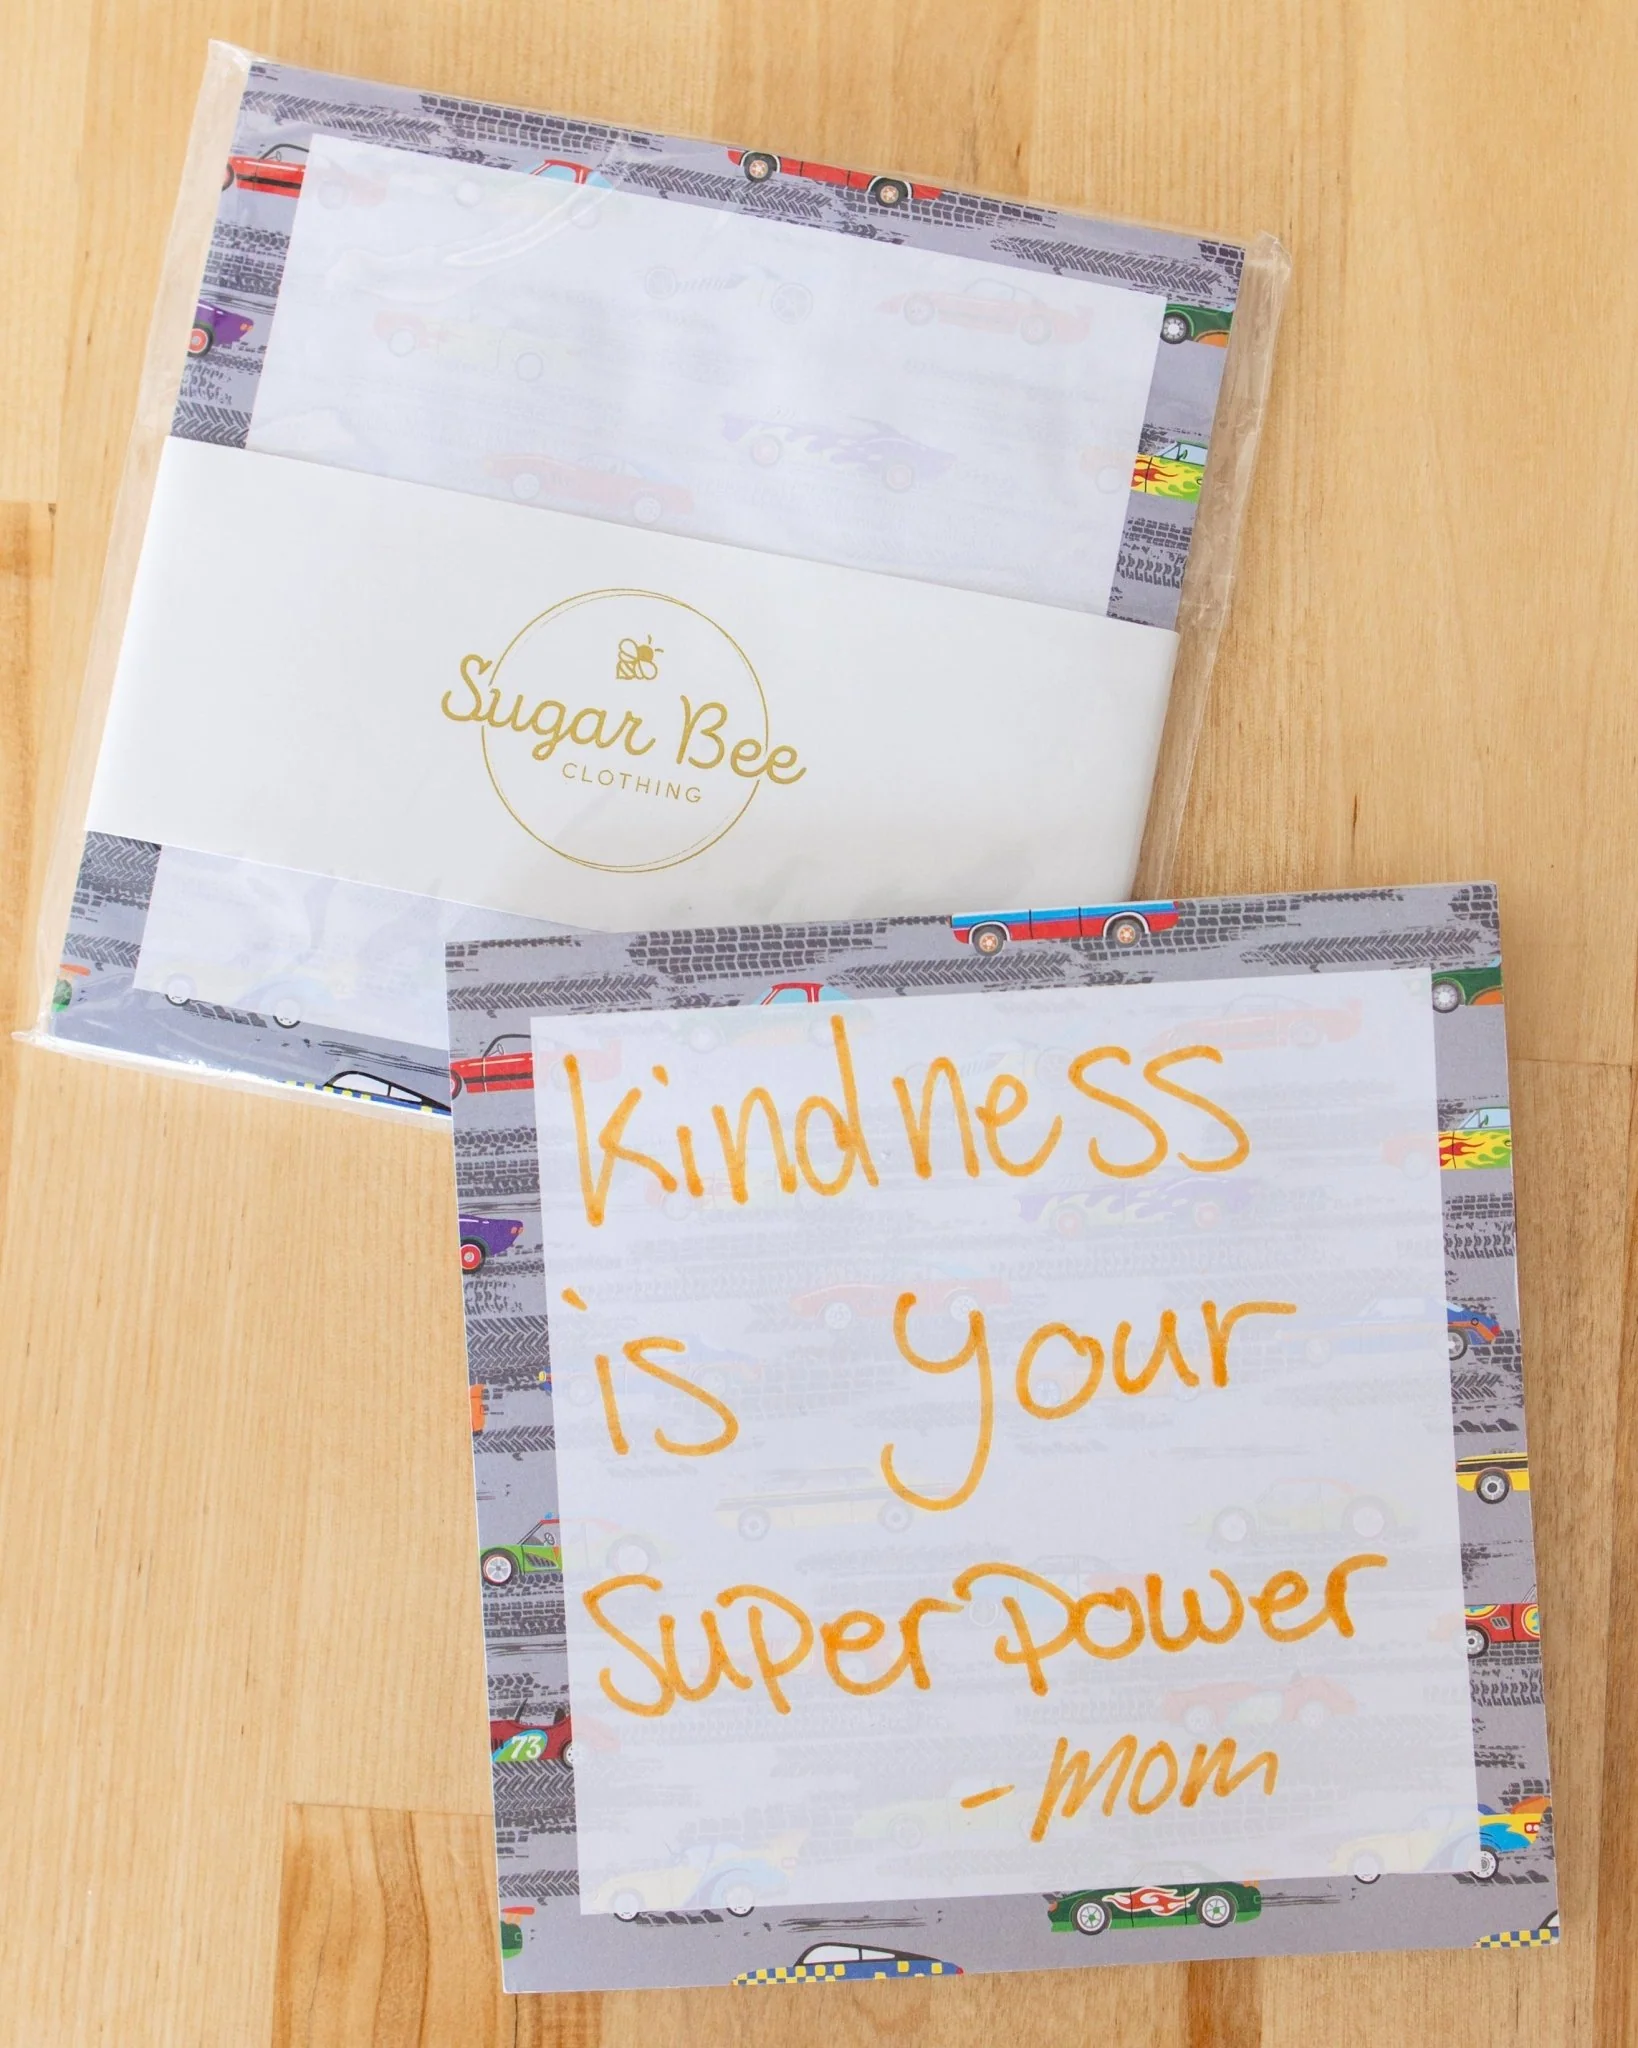 Sugar Bee
CLOTHING
Kindness
is your
Superpower
- mom
73